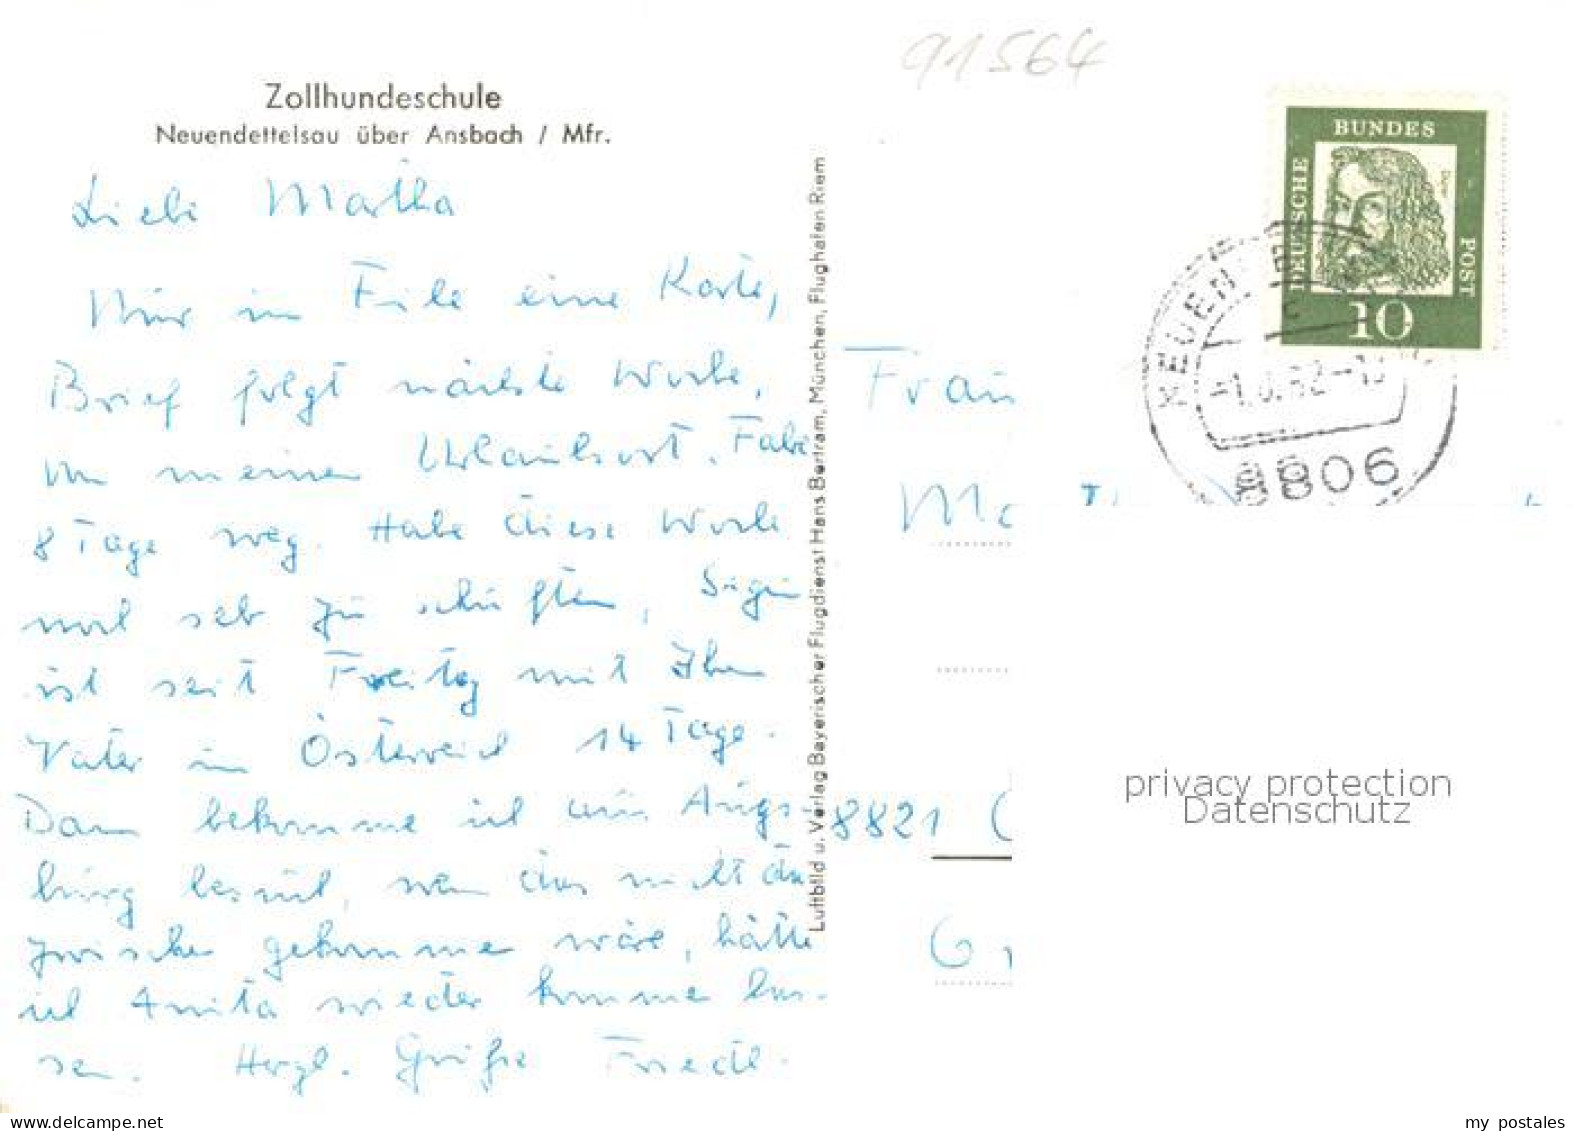 91564
Zollhundeschule
Neuendettelsau über Ansbach / Mfr.
Liebe Martha
Nur in Eile eine Karte,
Brief folgt nächste Woche,
von meinem Urlaubsort. Fahre
8 Tage weg. Habe diese Woche
noch sehr zu schuften,
ist seit Freitag mit Ihrem
Vater in Österreich 14 Tage.
Dann bekomme ich um Augs-
burg Besuch, wenn das nicht da
zwischen gekommen wäre, hätte
ich Anita wieder kommen las-
sen. Herzl. Grüße Friedl.
Luftbild u. Verlag Bayerischer Flugdienst Hans Bertram, München, Flughafen Riem
DEUTSCHE
BUNDES
POST
Dürer
10
NEUEN
8806
Frau
8821
privacy protection
Datenschutz
my postales